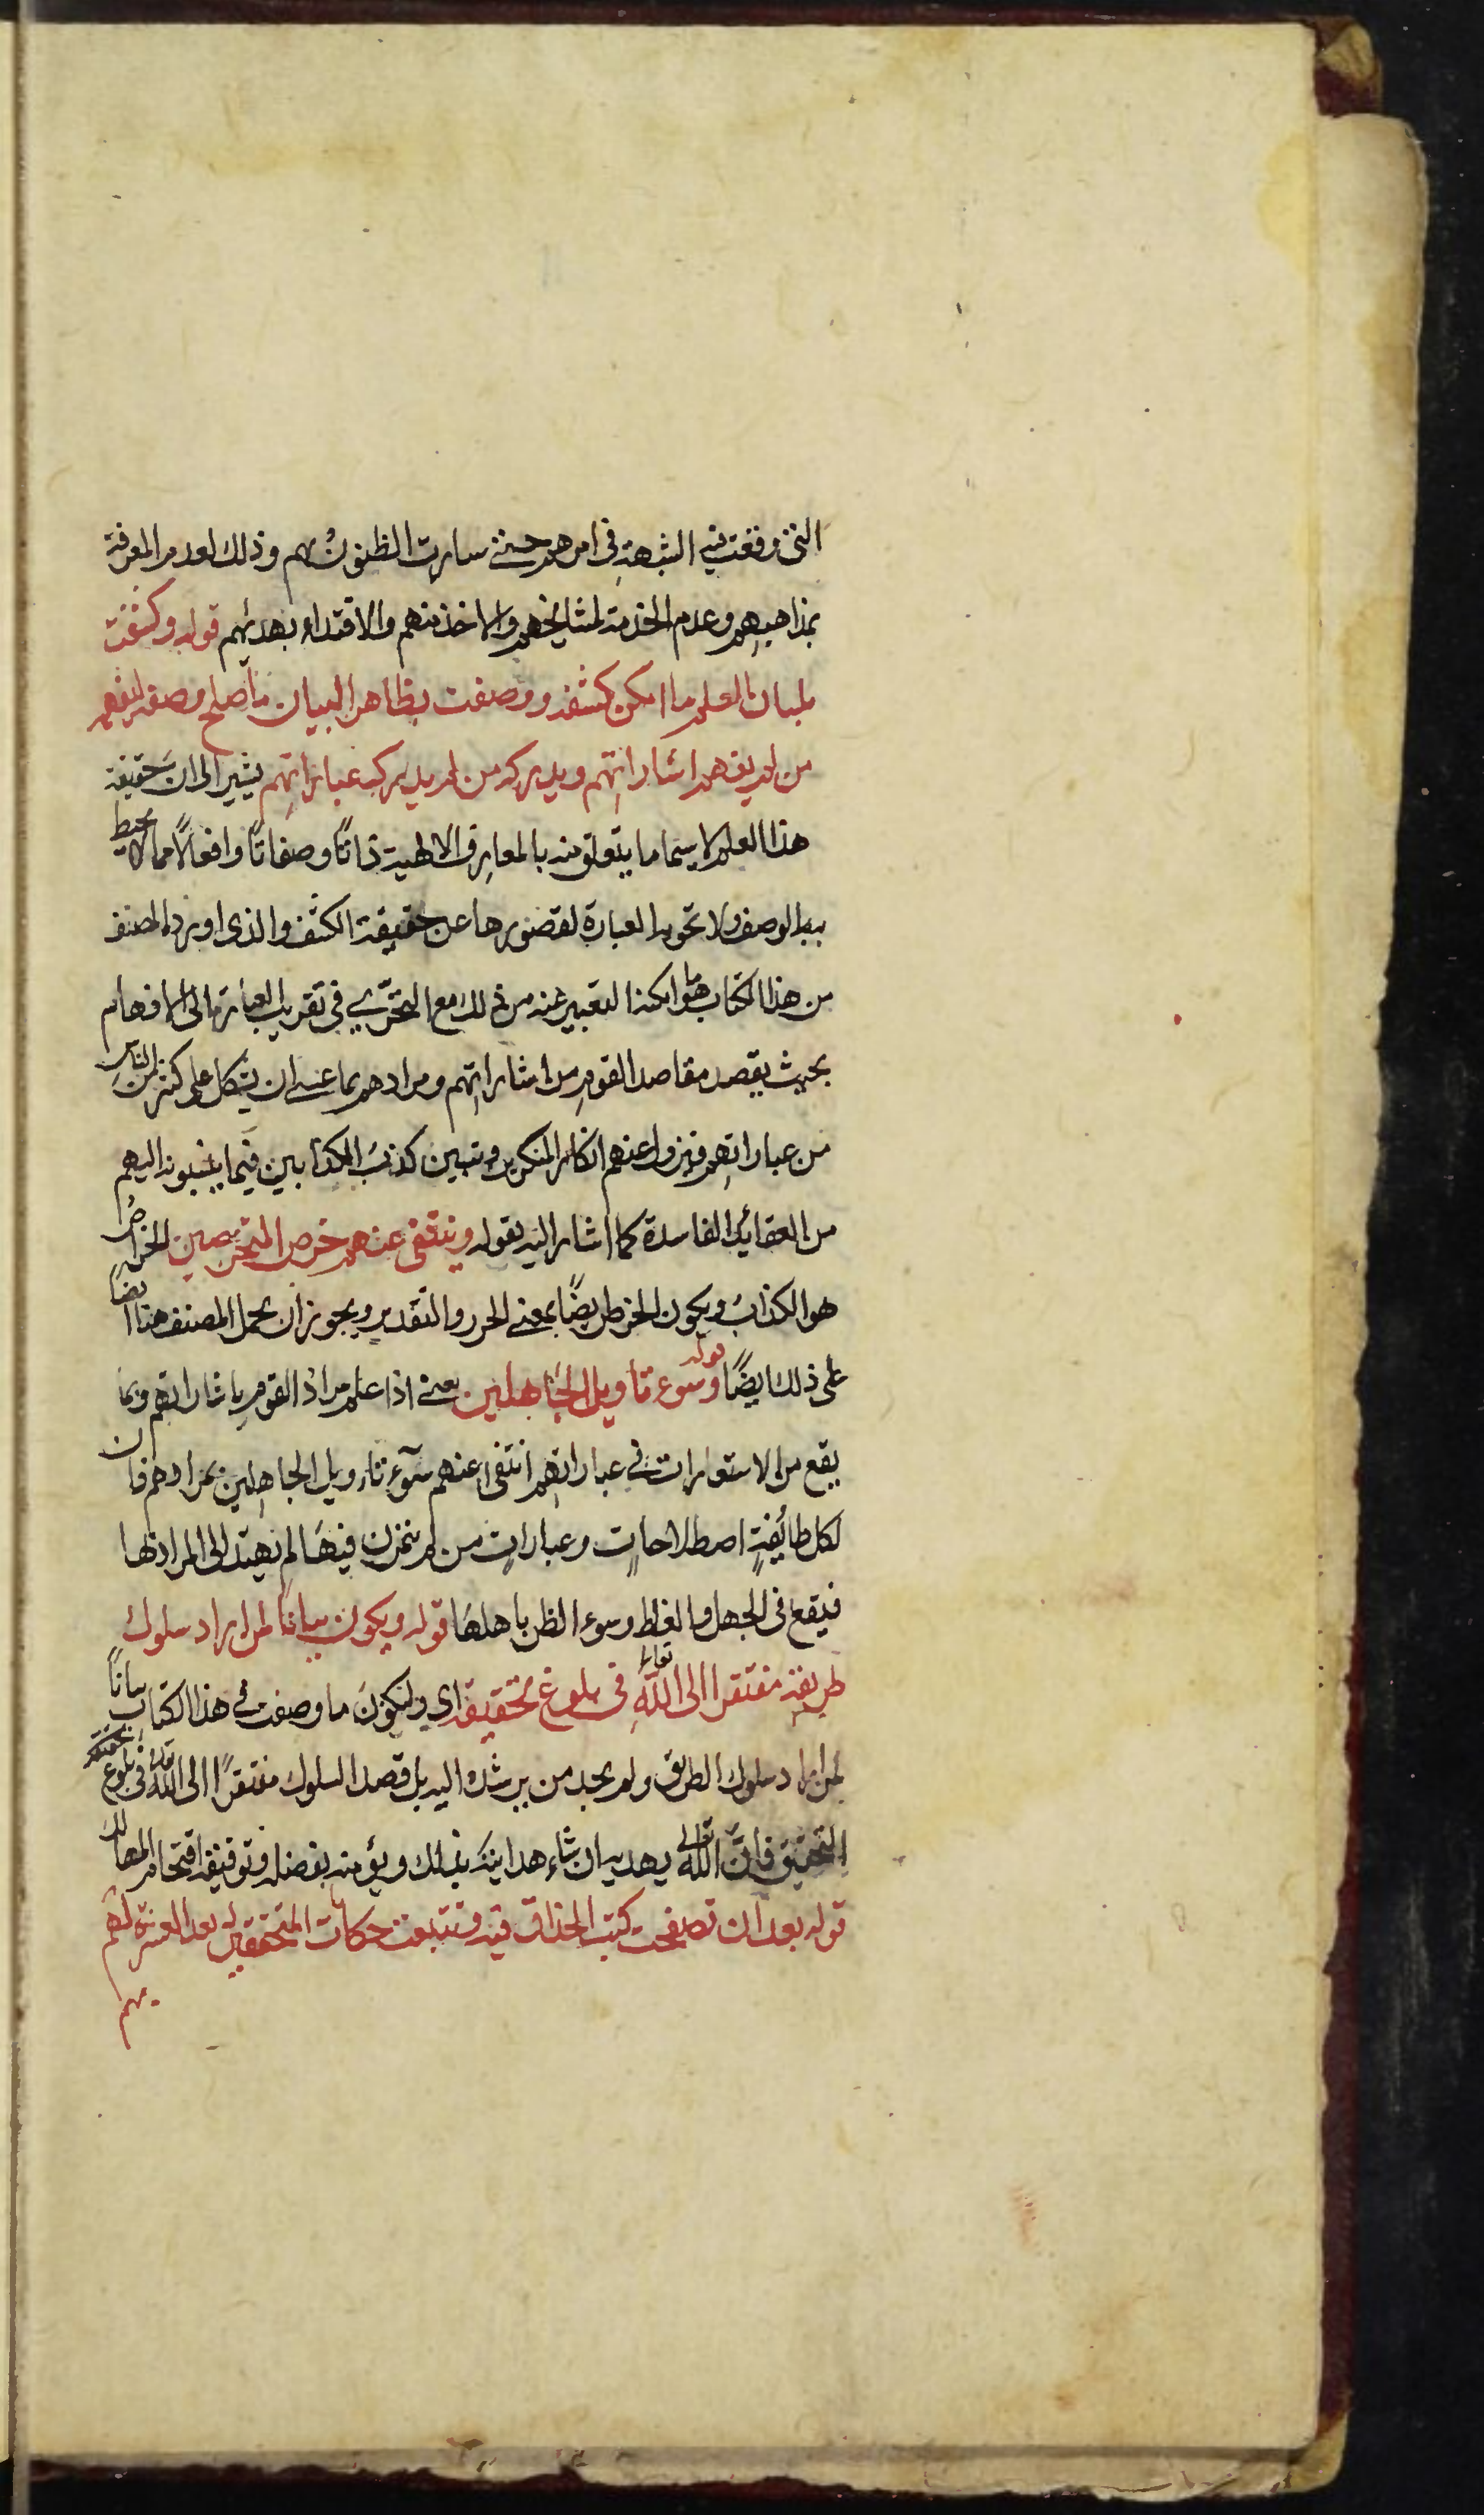 التى وقعت فيه الشبهة فى امرهم حتى سارت الظنون بهم وذلك لعدم المعرفة
بمذاهبهم وعدم الخدمة لمشايخهم والاخذ منهم والاقتداء بهديهم قوله وكشفت
بلسان العلم ما امكن كشفه ووصفت بظاهر البيان ما صلح وصفه ليفهمه
من لم يفهم اشاراتهم ويدركه من لم يدرك عباراتهم يشير الى ان حقيقة
هذا العلم لا سيما ما يتعلق منه بالمعارف الالهية ذاتًا وصفاتًا وافعالًا مما لا يحيط
به الوصف ولا تحويه العبارة لقصورها عن حقيقة الكشف والذى اورده المصنف
من هذا الكتاب هو ما امكنه التعبير عنه من ذلك مع التحرّي فى تقريب العبارة الى الافهام
بحيث يقصد مقاصد القوم من اشاراتهم ومرادهم بما عسى ان يشكل على كثير من الناس
من عباراتهم فيزول عنهم انكار المنكرين وتبين كذب الكذابين فيما ينسبونه اليهم
من العقائد الفاسدة كما اشار اليه بقوله وينتفى عنهم خرص المتخرصين الخراص
هو الكذاب ويكون الخرص ايضًا بمعنى الحزر والتقدير ويجوز ان يحمل المصنف هنا ايضًا
على ذلك ايضًا قوله وسوء تاويل الجاهلين يعنى اذا علم مراد القوم باشاراتهم وبما
يقع من الاستعارات فى عباراتهم انتفى عنهم سوء تاويل الجاهلين بمرادهم فان
لكل طائفةٍ اصطلاحاتٍ وعباراتٍ من لم يتمرن فيها لم يهتد الى المراد بها
فيقع فى الجهل والغلط وسوء الظن باهلها قوله ويكون بيانًا لمن اراد سلوك
طريقه مفتقرا الى الله تعالى فى بلوغ تحقيقه اي وليكون ما وصفت فى هذا الكتاب بيانًا
لمن اراد سلوك الطريق ولم يجد من يرشده اليه بل قصد السلوك مفتقرًا الى الله تعالى فى بلوغ تحقيقه
التحقيق فان الله تعالى يهديه ان شاء هدايته بذلك ويؤمنه بفضله وتوفيقه اقتحام المهالك
قوله بعد ان تصفحت كتب الحذاق فيه وتتبعت حكايات المتحققين له بعد العشرة لهم
بهم